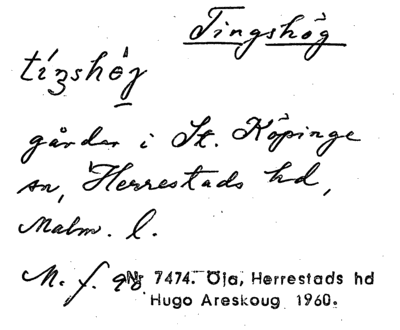 Tingshög
tíŋshǿg
gårdar i St. Köpinge
sn, Herrestads hd,
Malm. l.
M. f. 98 Nr 7474. Öja, Herrestads hd
Hugo Areskoug 1960.